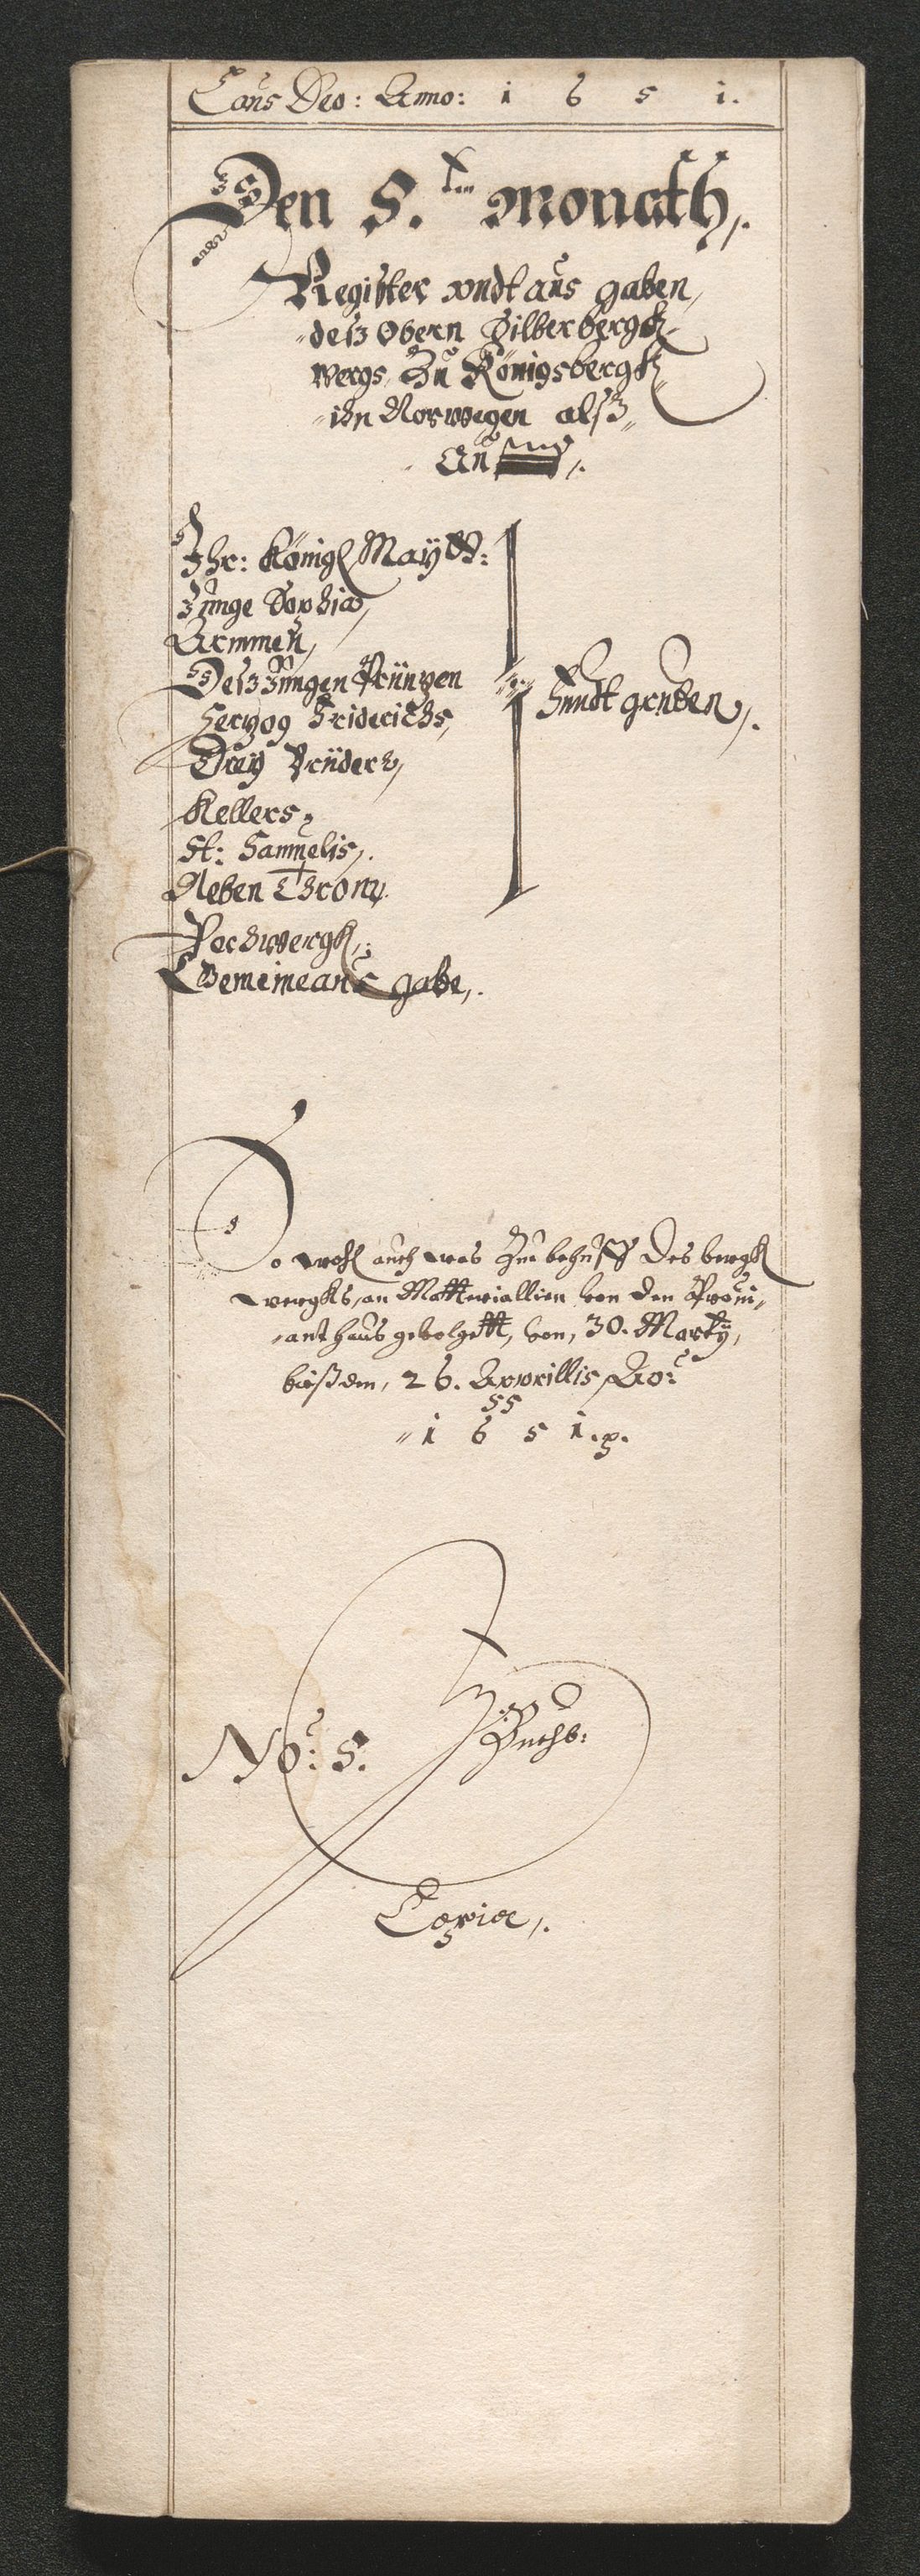 Laus Deo: Anno: 1 6 5 1.
Den 5.ten Monath,.
Register vndt aus gaben,
des Obern Silberbergk
wergs, Zu Königsbergk
ihn Norwegen alsz,
An
Ihr: Königl May tt:
Junge Sophia,
Armmen,
Desz Jungen Prüntzen
Hertzog Friderichs,
Drey Brüder,
Kellers,
St: Sammelis,.
Neben Throny
Fundt gruben,.
Pochwergk,:
Gemeine aus gabe,.
So wohl auch was Zu behuff des bergk
wergks, an Matteriallien von den Proui,
ant haus gevolgett, von, 30. Marty,
bisz den, 26. Apprillis Ao:
1 6 5 1. p.
No: 5.
Buchs:
Copia,.